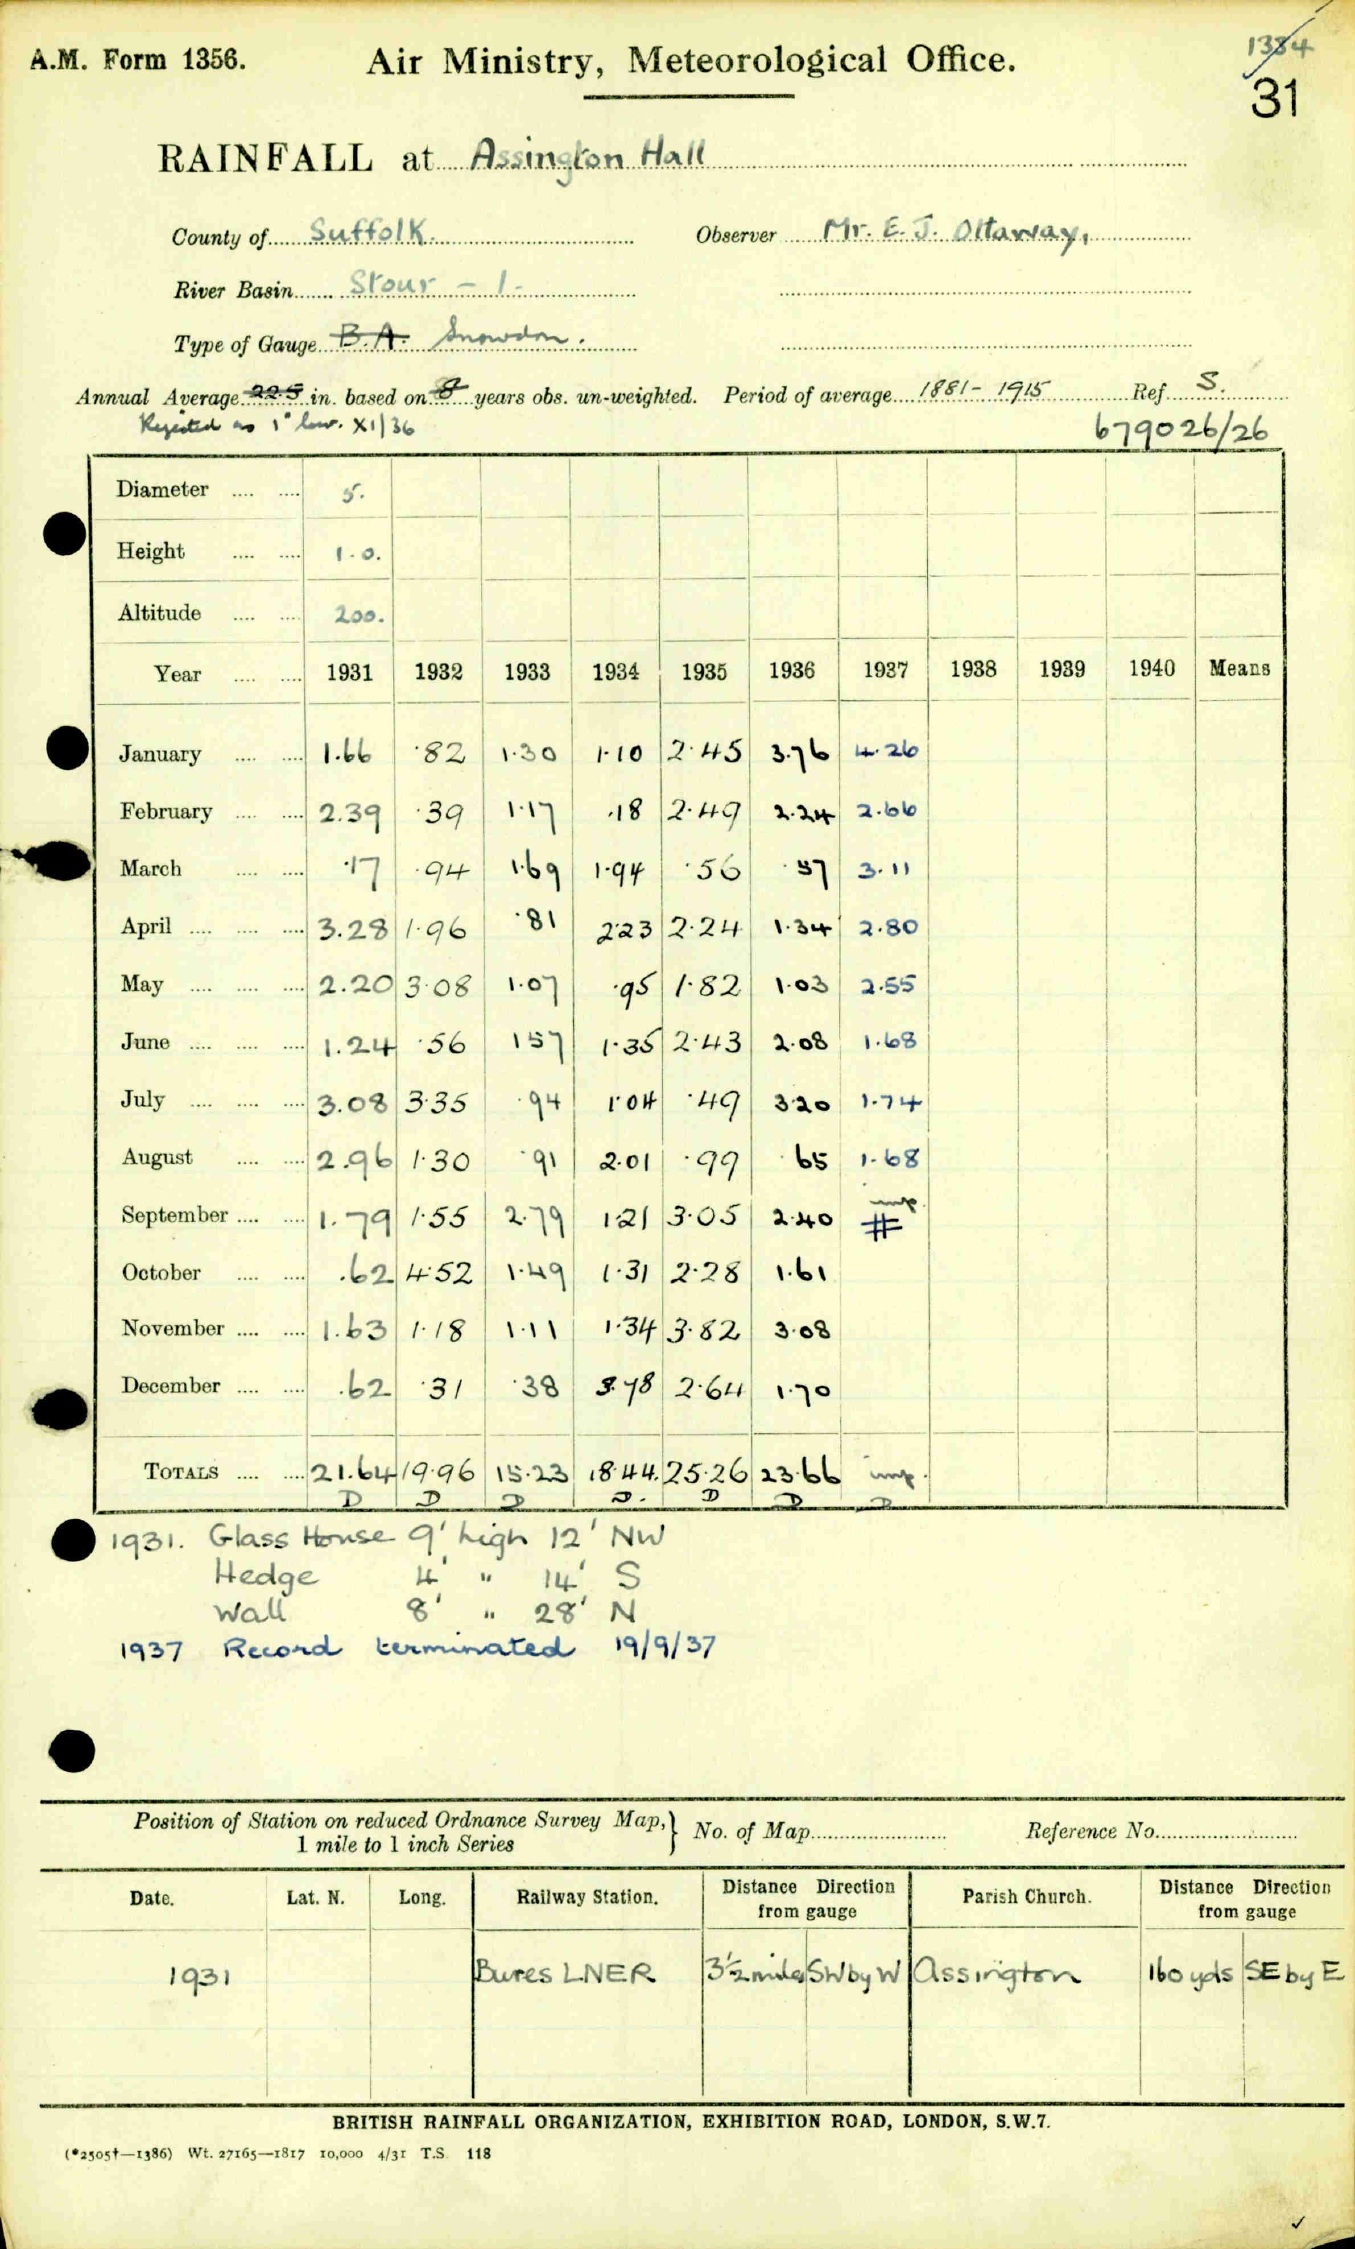 A.M. Form 1356. Air Ministry, Meteorological Office. 1384
31
RAINFALL at Assington Hall
County of Suffolk. Observer Mr. E. J. Ottaway,
River Basin Stour - 1.
Type of Gauge B.A. Snowdon.
Annual Average 22.5 in. based on 8 years obs. un-weighted. Period of average 1881 - 1915 Ref S.
Rejected as 1" low. XI/36 679026/26
Diameter .... .... 5.
Height .... .... 1.0.
Altitude .... .... 200.
Year .... .... 1931 1932 1933 1934 1935 1936 1937 1938 1939 1940 Means
January .... .... 1.66 .82 1.30 1.10 2.45 3.76 4.26
February .... .... 2.39 .39 1.17 .18 2.49 2.24 2.66
March .... .... .17 .94 1.69 1.94 .56 .57 3.11
April .... .... .... 3.28 1.96 .81 2.23 2.24 1.34 2.80
May .... .... .... 2.20 3.08 1.07 .95 1.82 1.03 2.55
June .... .... .... 1.24 .56 1 57 1.35 2.43 2.08 1.68
July .... .... .... 3.08 3.35 .94 1.04 .49 3.20 1.74
August .... .... 2.96 1.30 .91 2.01 .99 .65 1.68
September .... .... 1.79 1.55 2.79 1.21 3.05 2.40 imp. #
October .... .... .62 4.52 1.49 1.31 2.28 1.61
November .... .... 1.63 1.18 1.11 1.34 3.82 3.08
December .... .... .62 .31 .38 3.78 2.64 1.70
TOTALS .... .... 21.64 19.96 15.23 18.44. 25.26 23.66 imp.
D D D D. D D D
1931. Glass House 9' high 12' NW
Hedge 4' " 14' S
Wall 8' " 28' N
1937 Record terminated 19/9/37
Position of Station on reduced Ordnance Survey Map, } No. of Map Reference No.
1 mile to 1 inch Series
Date. Lat. N. Long. Railway Station. Distance Direction from gauge Parish Church. Distance Direction from gauge
1931 Bures LNER 3½ miles SW by W Assington 160 yds SE by E
BRITISH RAINFALL ORGANIZATION, EXHIBITION ROAD, LONDON, S.W.7.
(*2505†—1386) Wt. 27165—1817 10,000 4/31 T.S. 118